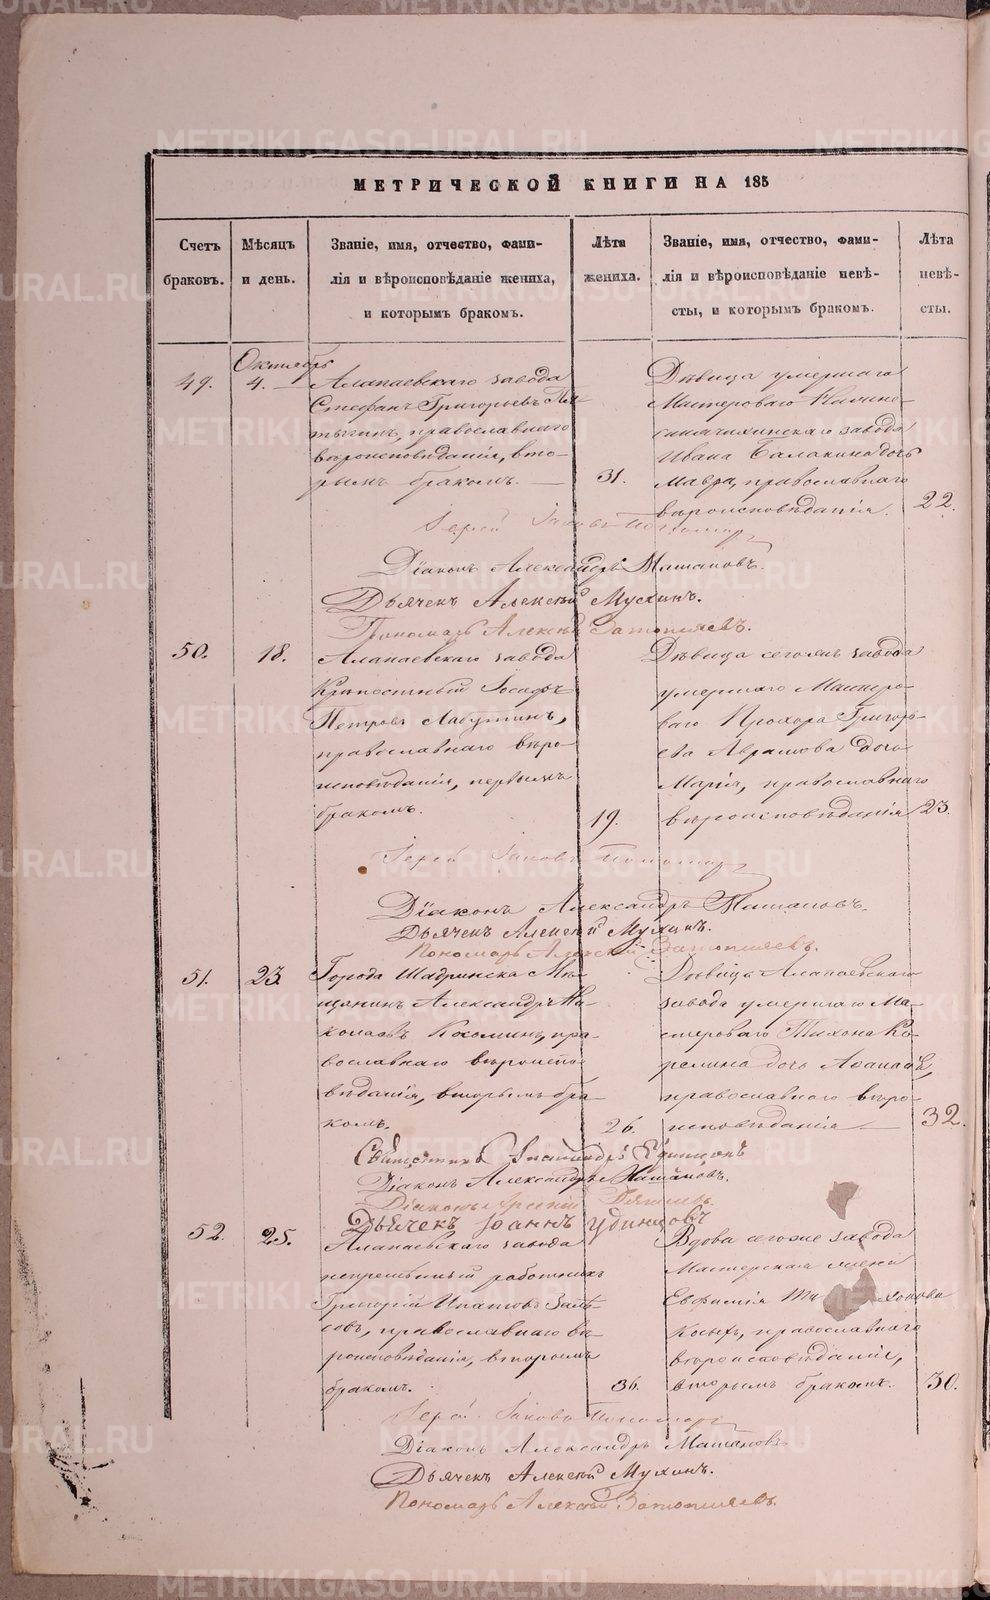 МЕТРИЧЕСКОЙ КНИГИ НА 185
Счетъ браковъ.
Мѣсяцъ и день.
Званіе, имя, отчество, фами-
лія и вѣроисповѣданіе жениха,
и которымъ бракомъ.
Лѣта жениха.
Званіе, имя, отчество, фами-
лія и вѣроисповѣданіе невѣ-
сты, и которымъ бракомъ.
Лѣта невѣ-
сты.
49.
Октябрь
4.
Алапаевскаго завода
Стефанъ Григорьевъ
православнаго
вѣроисповѣданія, вто-
рымъ бракомъ.
31.
Дѣвица умершаго
Мастероваго Нижне-
синячихинскаго завода
Ивана Балакина дочь
Мавра, православнаго
вѣроисповѣданія.
22.
Іерей Іаковъ Пономаревъ
Діаконъ Александръ
Дьячекъ Алексѣй Мухинъ.
Пономарь Алексѣй
50.
18.
Алапаевскаго завода
Крѣпостный Іосифъ
Петровъ Лабутинъ,
православнаго вѣро-
исповѣданія, первымъ
бракомъ.
19.
Дѣвица сегожъ завода
умершаго Мастеро-
ваго Прохора Григорь-
ева Абрамова дочь
Марія, православнаго
вѣроисповѣданія
23.
Іерей Іаковъ Пономаревъ
Діаконъ Александръ
Дьячекъ Алексѣй Мухинъ.
Пономарь Алексѣй
51.
23.
Города Шадринска Мѣ-
щанинъ Александръ Ни-
колаевъ пра-
вославнаго вѣроиспо-
вѣданія, вторымъ бра-
комъ.
26.
Дѣвица Алапаевскаго
завода умершаго Ма-
стероваго Тихона Ко-
релина дочь
православнаго вѣро-
исповѣданія
32.
Священникъ Удинцовъ
Діаконъ Александръ
Діаконъ Арсеній
Дьячекъ Іоаннъ Удинцовъ
52.
25.
Алапаевскаго завода
непремѣнный работникъ
Григорій Ипатовъ Зай-
ковъ, православнаго вѣ-
роисповѣданія, вторымъ
бракомъ.
36.
Вдова сегоже завода
Мастерская жена
Евфимія
Косыхъ, православнаго
вѣроисповѣданія,
вторымъ бракомъ.
30.
Іерей Іаковъ Пономаревъ
Діаконъ Александръ
Дьячекъ Алексѣй Мухинъ.
Пономарь Алексѣй
METRIKI.GASO-URAL.RU